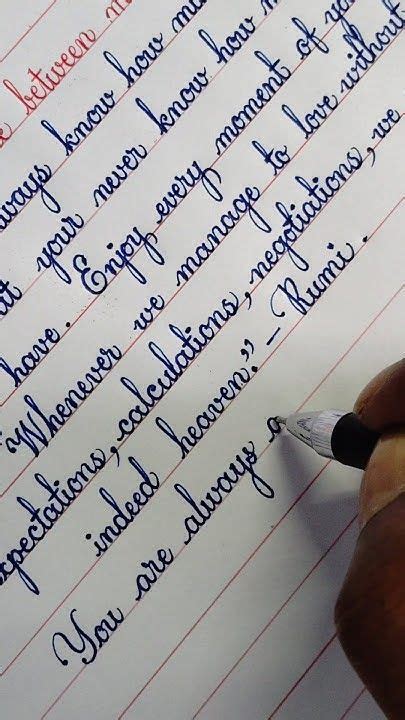 between
ways know how
your never know how
have. Enjoy every moment of
"Whenever we manage to love without
xpectations, calculations, negotiations, we
indeed heaven." - Rumi.
You are always a